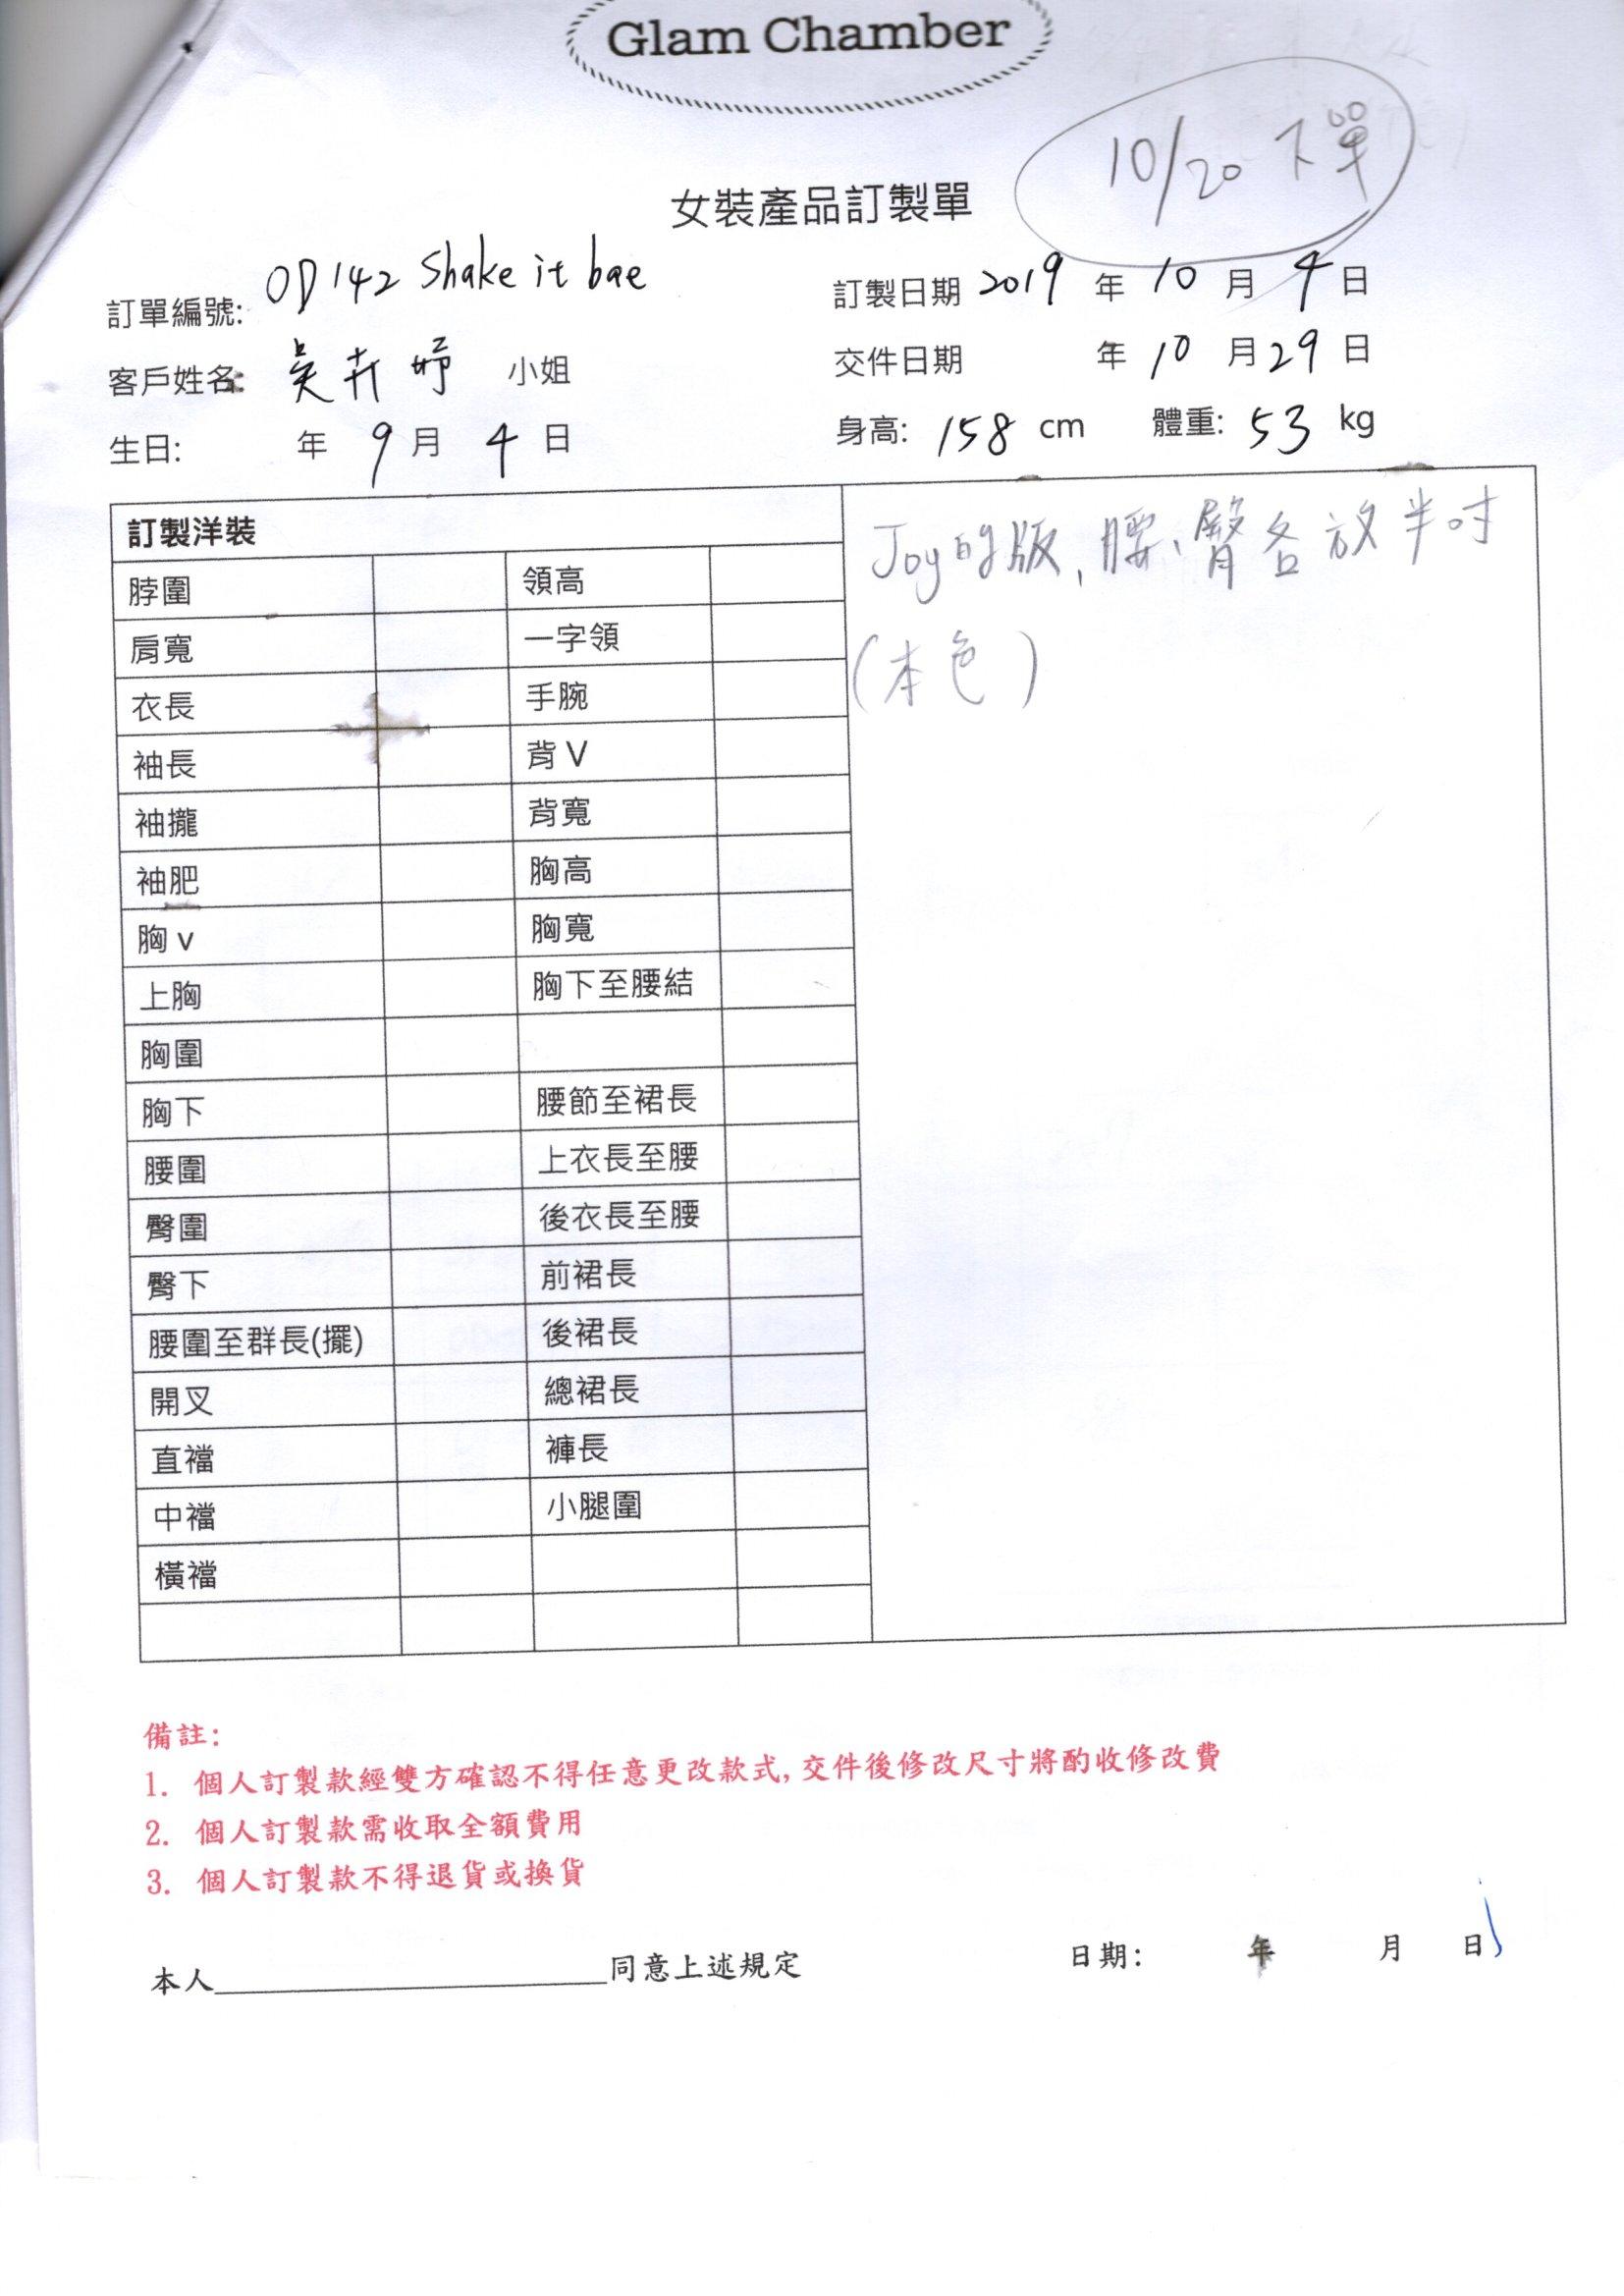 Glam Chamber
10/20 下單
女裝產品訂製單
訂單編號: OD142 Shake it bae 訂製日期 2019 年 10 月 4 日
客戶姓名: 吳卉妤 小姐 交件日期 年 10 月 29 日
生日: 年 9 月 4 日 身高: 158 cm 體重: 53 kg
訂製洋裝
Joy的版, 腰、臀各放半吋
(本色)
脖圍 領高
肩寬 一字領
衣長 手腕
袖長 背 V
袖攏 背寬
袖肥 胸高
胸 v 胸寬
上胸 胸下至腰結
胸圍
胸下 腰節至裙長
腰圍 上衣長至腰
臀圍 後衣長至腰
臀下 前裙長
腰圍至群長(擺) 後裙長
開叉 總裙長
直襠 褲長
中襠 小腿圍
橫襠
備註:
1. 個人訂製款經雙方確認不得任意更改款式, 交件後修改尺寸將酌收修改費
2. 個人訂製款需收取全額費用
3. 個人訂製款不得退貨或換貨
本人____________________同意上述規定 日期: 年 月 日